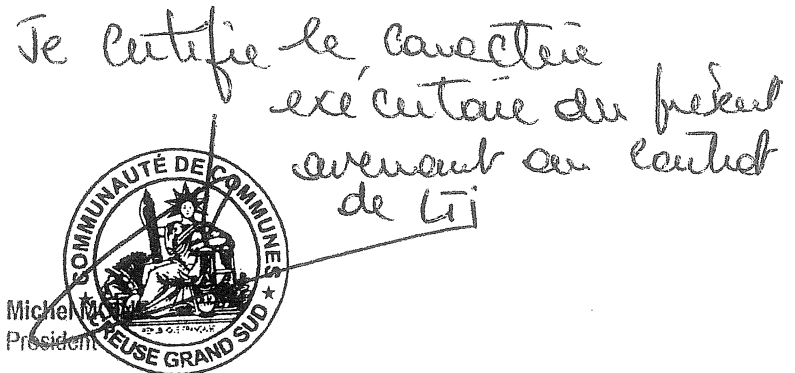 Je certifie le caractère
exécutoire du présent
avenant au contrat
de
COMMUNAUTÉ DE COMMUNES
★ CREUSE GRAND SUD ★
Michel
Président